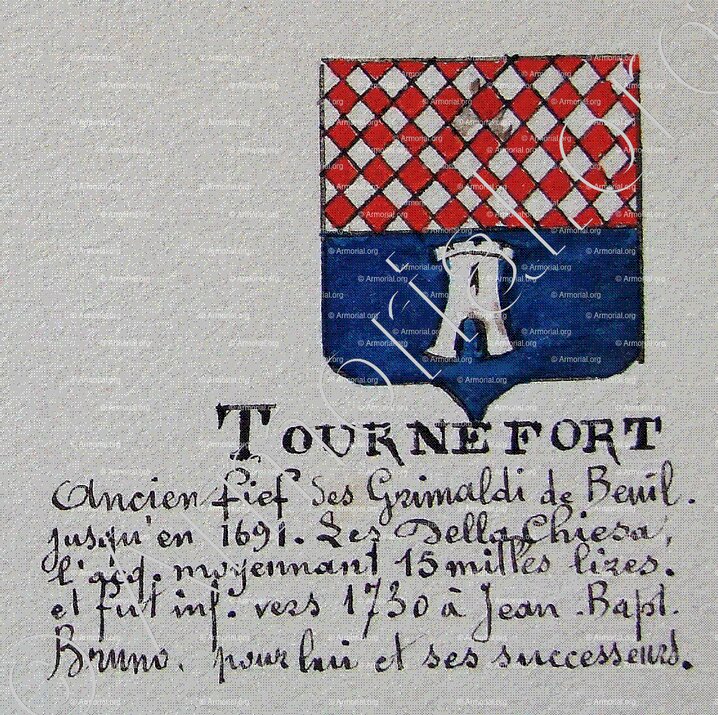 TOURNEFORT
Ancien fief des Grimaldi de Beuil.
jusqu'en 1691. Les Della Chiesa,
l'acq. moyennant 15 milles lires.
et fut inf. vers 1730 à Jean-Bapt.
Bruno. pour lui et ses successeurs.
© Armorial.org